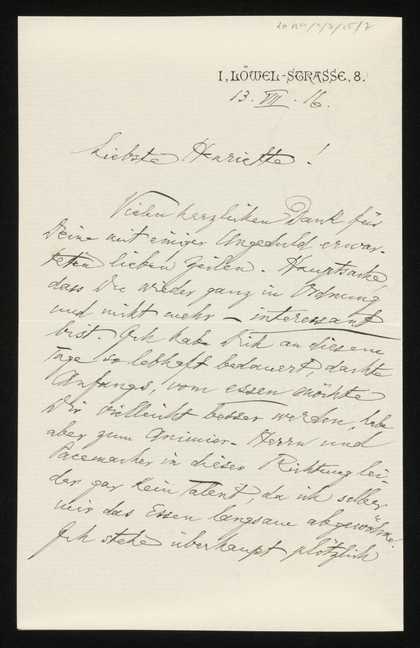 I, LÖWEL-STRASSE, 8.
13. VII. 16.
Liebste Henriette!
Vielen herzlichen Dank für
Deine mit einiger Ungeduld erwar-
teten lieben Zeilen. Hauptsache
dass Du wieder ganz in Ordnung
und nicht mehr – interessant
bist. Ich habe Dich an diesem
Tage so lebhaft bedauert, dachte
Anfangs, vom essen möchte
Dir vielleicht besser werden, habe
aber zum Animier-Herrn und
Pacemacher in dieser Richtung lei-
der gar kein Talent, da ich selber
mir das Essen langsam abgewöhne.
Ich stehe überhaupt plötzlich